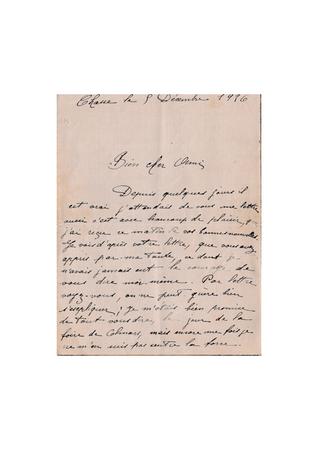 Chasse le 5 Décembre 1916
Bien cher Ami
Depuis quelques jours il
est vrai j'attendais de vous une lettre
aussi c'est avec beaucoup de plaisir q
j'ai reçu ce matin vos bonnes nouvelles
Je vois d'après votre lettre, que vous avez
appris par ma tante, ce dont je
n'avais jamais eut le courage de
vous dire moi même. Par lettre
voyez-vous, on ne peut guère bien
s'expliquer, je m'étais bien promise
de tout vous dire, le jour de la
foire de Colmars, mais encore une fois je
ne m'en suis pas sentie la force.